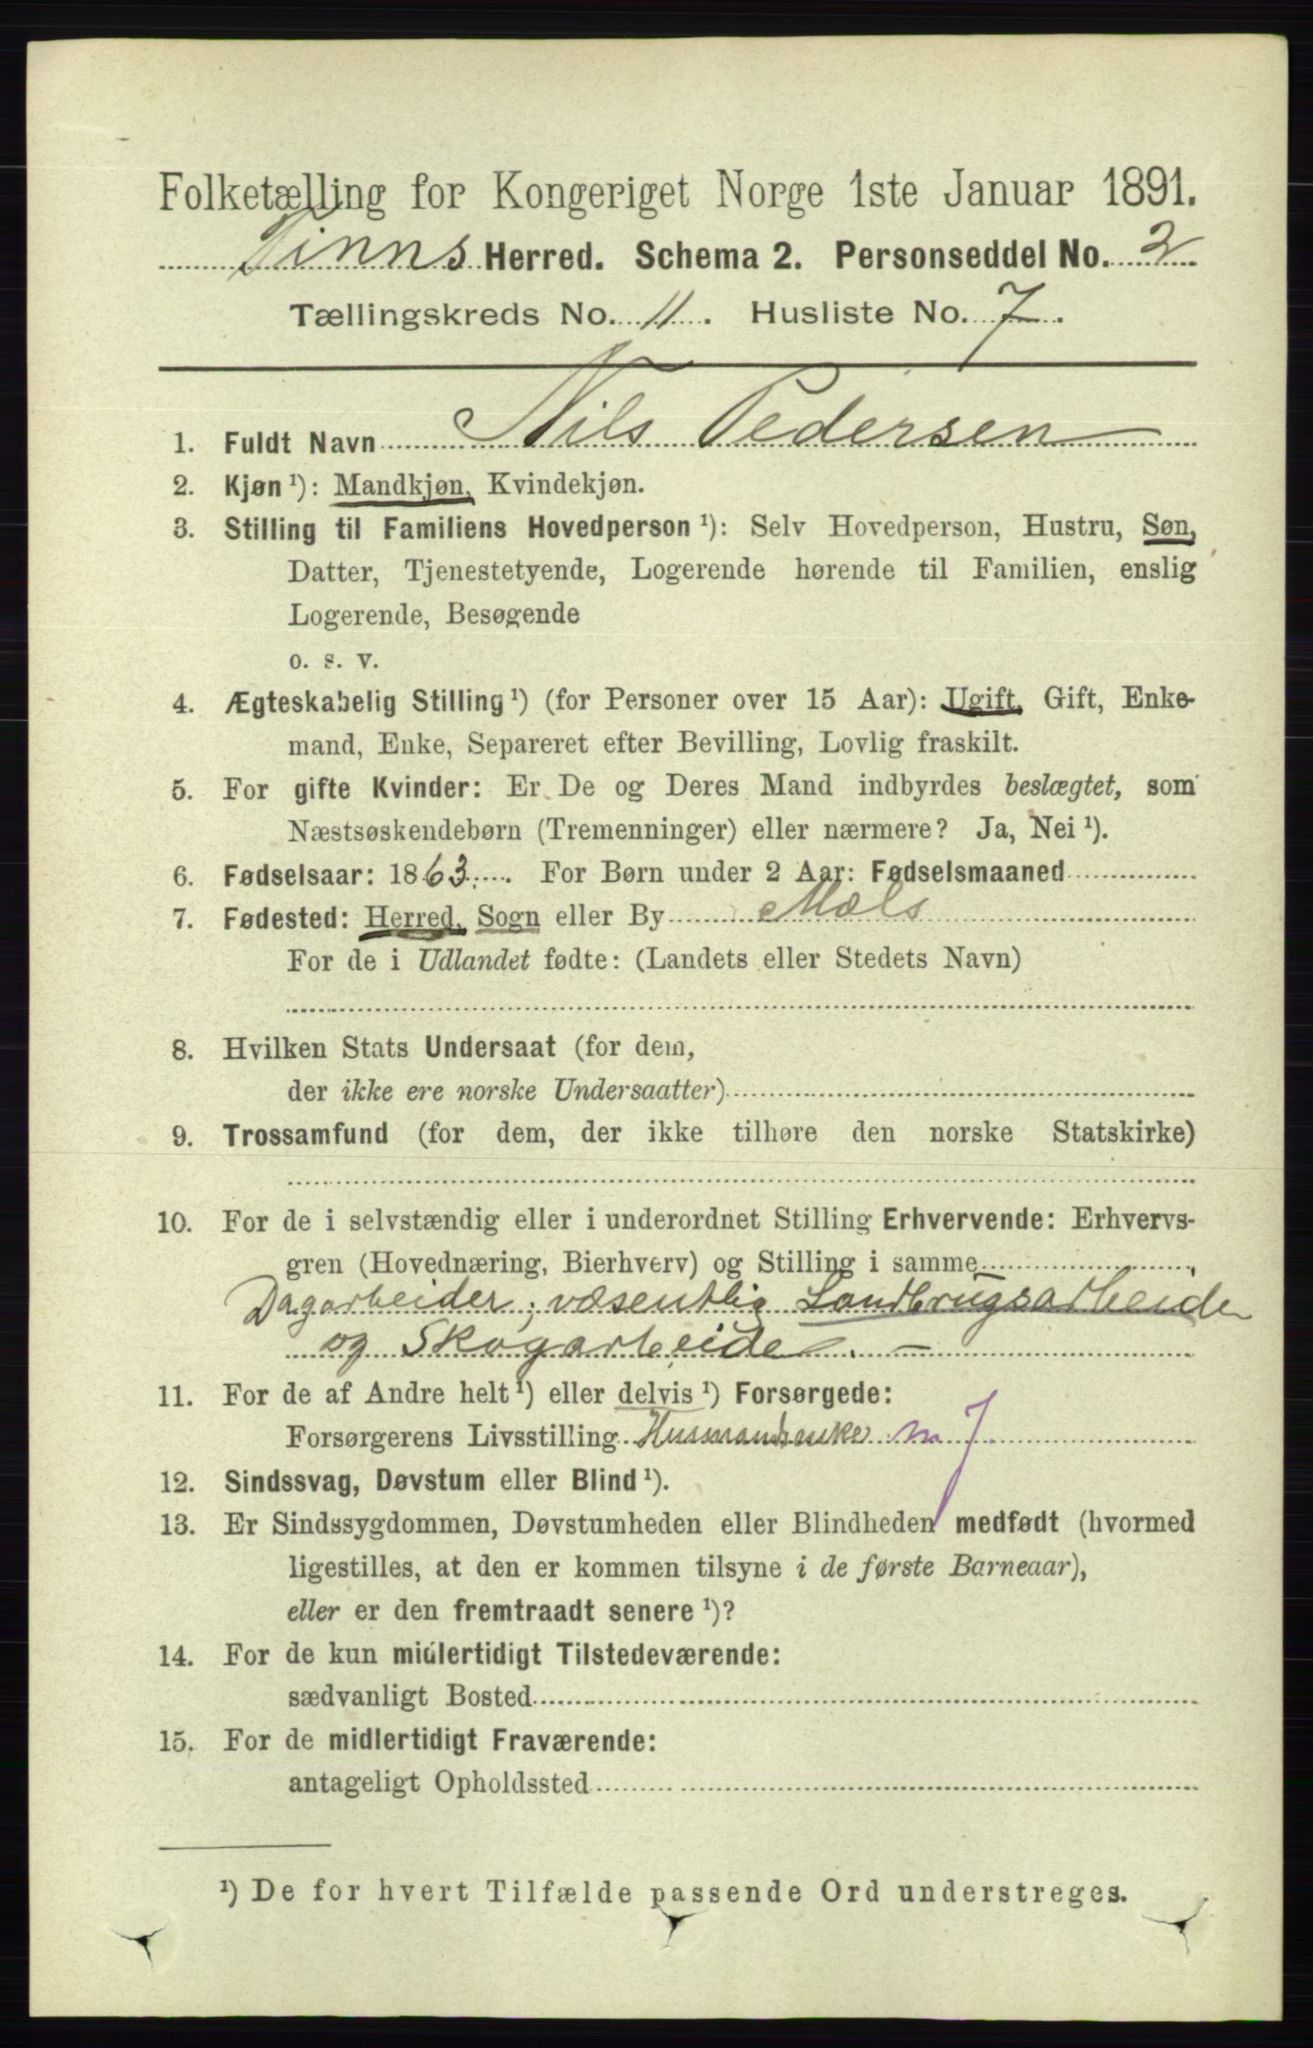 Folketælling for Kongeriget Norge 1ste Januar 1891.
Tinns Herred. Schema 2. Personseddel No. 2
Tællingskreds No. 11. Husliste No. 7.
1. Fuldt Navn Nils Pedersen
2. Kjøn ¹): Mandkjøn, Kvindekjøn.
3. Stilling til Familiens Hovedperson ¹): Selv Hovedperson, Hustru, Søn,
Datter, Tjenestetyende, Logerende hørende til Familien, enslig
Logerende, Besøgende
o. s. v.
4. Ægteskabelig Stilling ¹) (for Personer over 15 Aar): Ugift, Gift, Enke-
mand, Enke, Separeret efter Bevilling, Lovlig fraskilt.
5. For gifte Kvinder: Er De og Deres Mand indbyrdes beslægtet, som
Næstsøskendebørn (Tremenninger) eller nærmere? Ja, Nei ¹).
6. Fødselsaar: 1863. For Børn under 2 Aar: Fødselsmaaned
7. Fødested: Herred, Sogn eller By Mæls
For de i Udlandet fødte: (Landets eller Stedets Navn)
8. Hvilken Stats Undersaat (for dem,
der ikke ere norske Undersaatter)
9. Trossamfund (for dem, der ikke tilhøre den norske Statskirke)
10. For de i selvstændig eller i underordnet Stilling Erhvervende: Erhvervs-
gren (Hovednæring, Bierhverv) og Stilling i samme
Dagarbeider; væsentlig Landbrugsarbeide
og Skogarbeide. —
11. For de af Andre helt ¹) eller delvis ¹) Forsørgede:
Forsørgerens Livsstilling Husmandsenke m J
12. Sindssvag, Døvstum eller Blind ¹).
13. Er Sindssygdommen, Døvstumheden eller Blindheden medfødt (hvormed
ligestilles, at den er kommen tilsyne i de første Barneaar),
eller er den fremtraadt senere ¹)?
14. For de kun midlertidigt Tilstedeværende:
sædvanligt Bosted
15. For de midlertidigt Fraværende:
antageligt Opholdssted
¹) De for hvert Tilfælde passende Ord understreges.